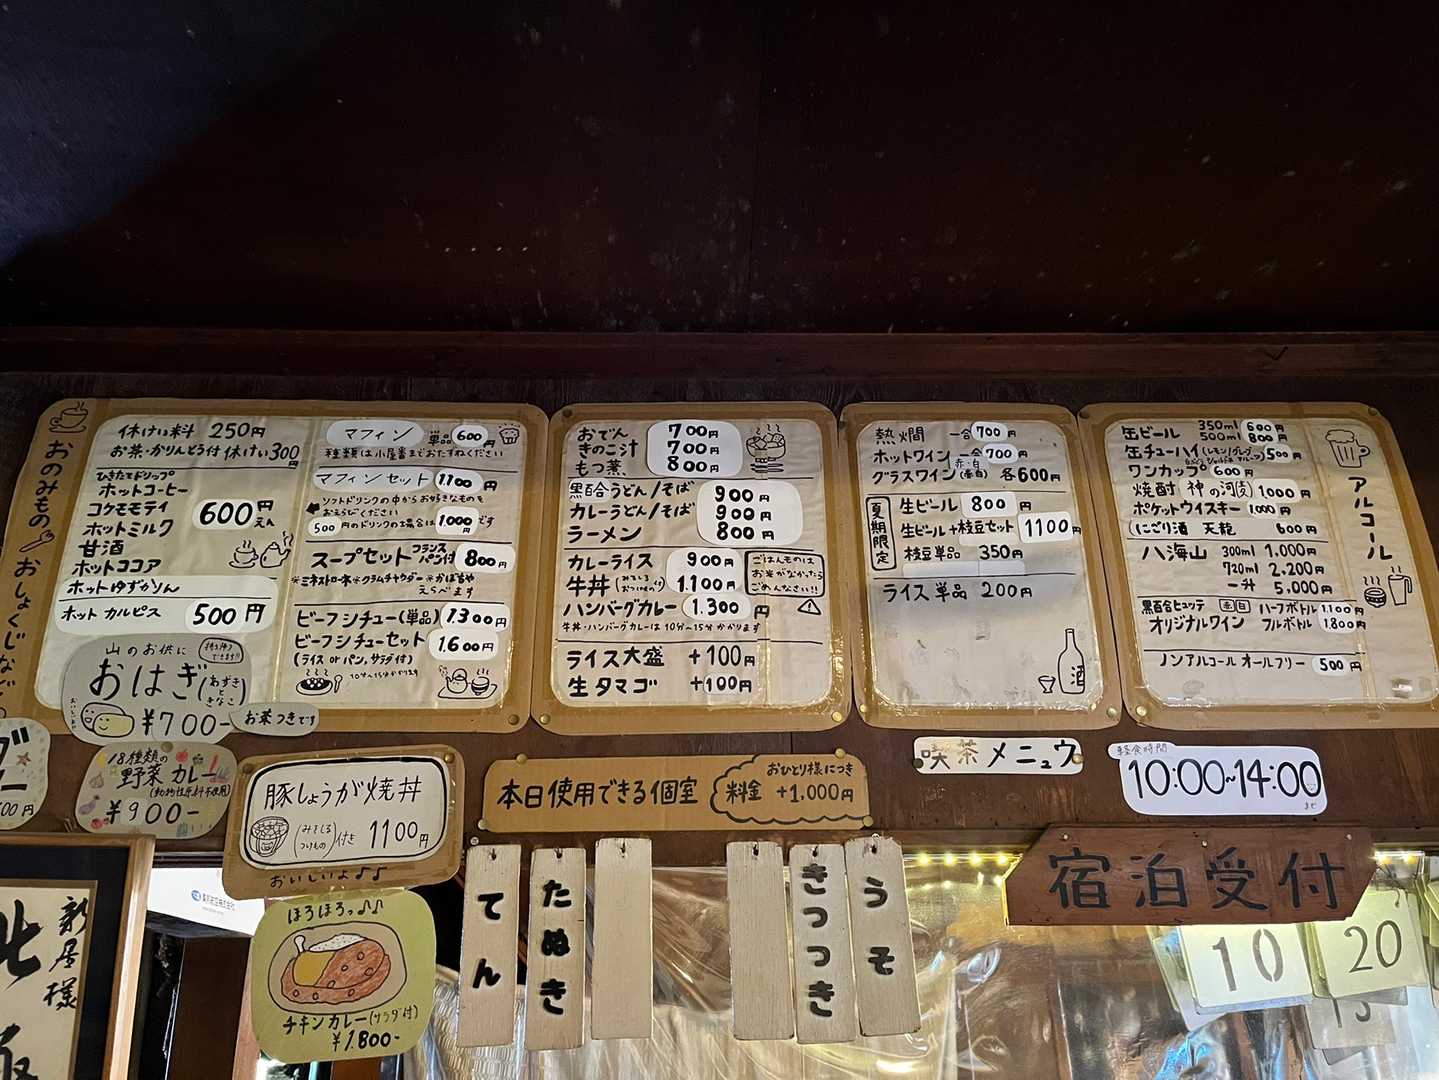 おのみもの おしょくじなど
休けい料 250円
お茶・かりんとう付 休けい300円
ひきたてドリップ
ホットコーヒー
コケモモティ
ホットミルク
甘酒
ホットココア
600円
ホットゆずかりん
ホットカルピス 500円
マフィン 単品 600円
種類は小屋番までおたずねください
マフィンセット 1,100円
ソフトドリンクの中からお好きなものを
おえらびください
500円のドリンクの場合は1,000円です
スープセット フランスパン付 800円
※ミネストローネ※クラムチャウダー※かぼちゃ
えらべます
ビーフシチュー(単品) 1,300円
ビーフシチューセット 1,600円
(ライス or パン,サラダ付)
10分~15分かかります
おでん 700円
きのこ汁 700円
もつ煮、 800円
黒百合うどん/そば 900円
カレーうどん/そば 900円
ラーメン 800円
カレーライス 900円
牛丼(みそしるおつけもの付) 1,100円
ハンバーグカレー 1,300円
牛丼・ハンバーグカレーは10分~15分かかります
ごはんものは
お米がなかったら
ごめんなさい!!
ライス大盛 +100円
生タマゴ +100円
熱燗 一合700円
ホットワイン 一合700円
グラスワイン(赤・白) 各600円
夏期限定
生ビール 800円
生ビール+枝豆セット 1100円
枝豆単品 350円
ライス単品 200円
酒
アルコール
缶ビール 350ml 600円
500ml 800円
缶チューハイ 500円
ワンカップ 600円
焼酎 神の河(麦) 1,000円
ポケットウイスキー 1,000円
にごり酒 天龍 600円
八海山 300ml 1,000円
720ml 2,200円
一升 5,000円
黒百合ヒュッテ 赤白 ハーフボトル 1,100円
オリジナルワイン フルボトル 1,800円
ノンアルコール オールフリー 500円
山のお供に
おはぎ(あずきときなこ)
¥700-
お茶つきです
18種類の
野菜カレー
(動物性原料不使用)
¥900-
豚しょうが焼丼
(みそしるつけもの)付き 1100円
おいしいよ♪♪
本日使用できる個室
おひとり様につき
料金 +1,000円
喫茶メニュウ
軽食時間
10:00~14:00
まで
宿泊受付
ほろほろっ♪♪
チキンカレー(サラダ付)
¥1,800-
てん
たぬき
きつつき
うそ
10
20
新居様
北